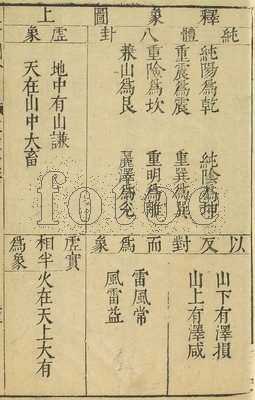 釋象圖上
純體八卦
純陽爲乾 純陰爲坤
重震爲震 重巽爲巽
重險爲坎 重明爲離
兼山爲艮 麗澤爲兌
虛象
地中有山謙
天在山中大畜
以反對而爲象
山下有澤損
山上有澤咸
雷風常
風雷益
虛實相半爲象
火在天上大有
fotoe